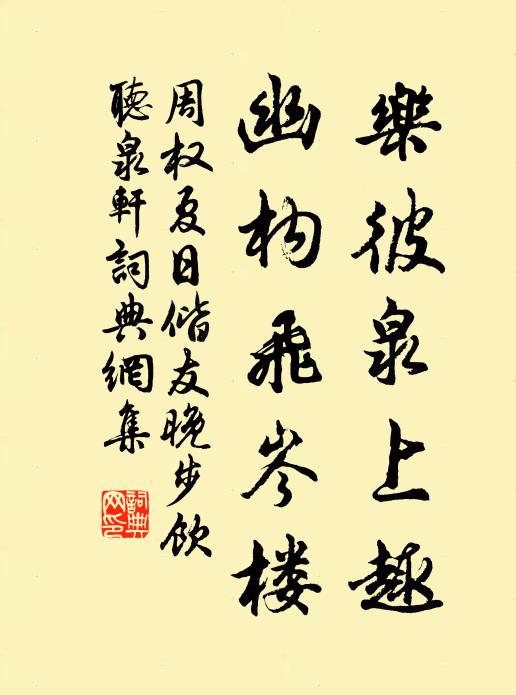 樂彼泉上趣
幽构飛岑楼
周权夏日偕友晚步飲
聴泉軒詞典網集
詞典网印